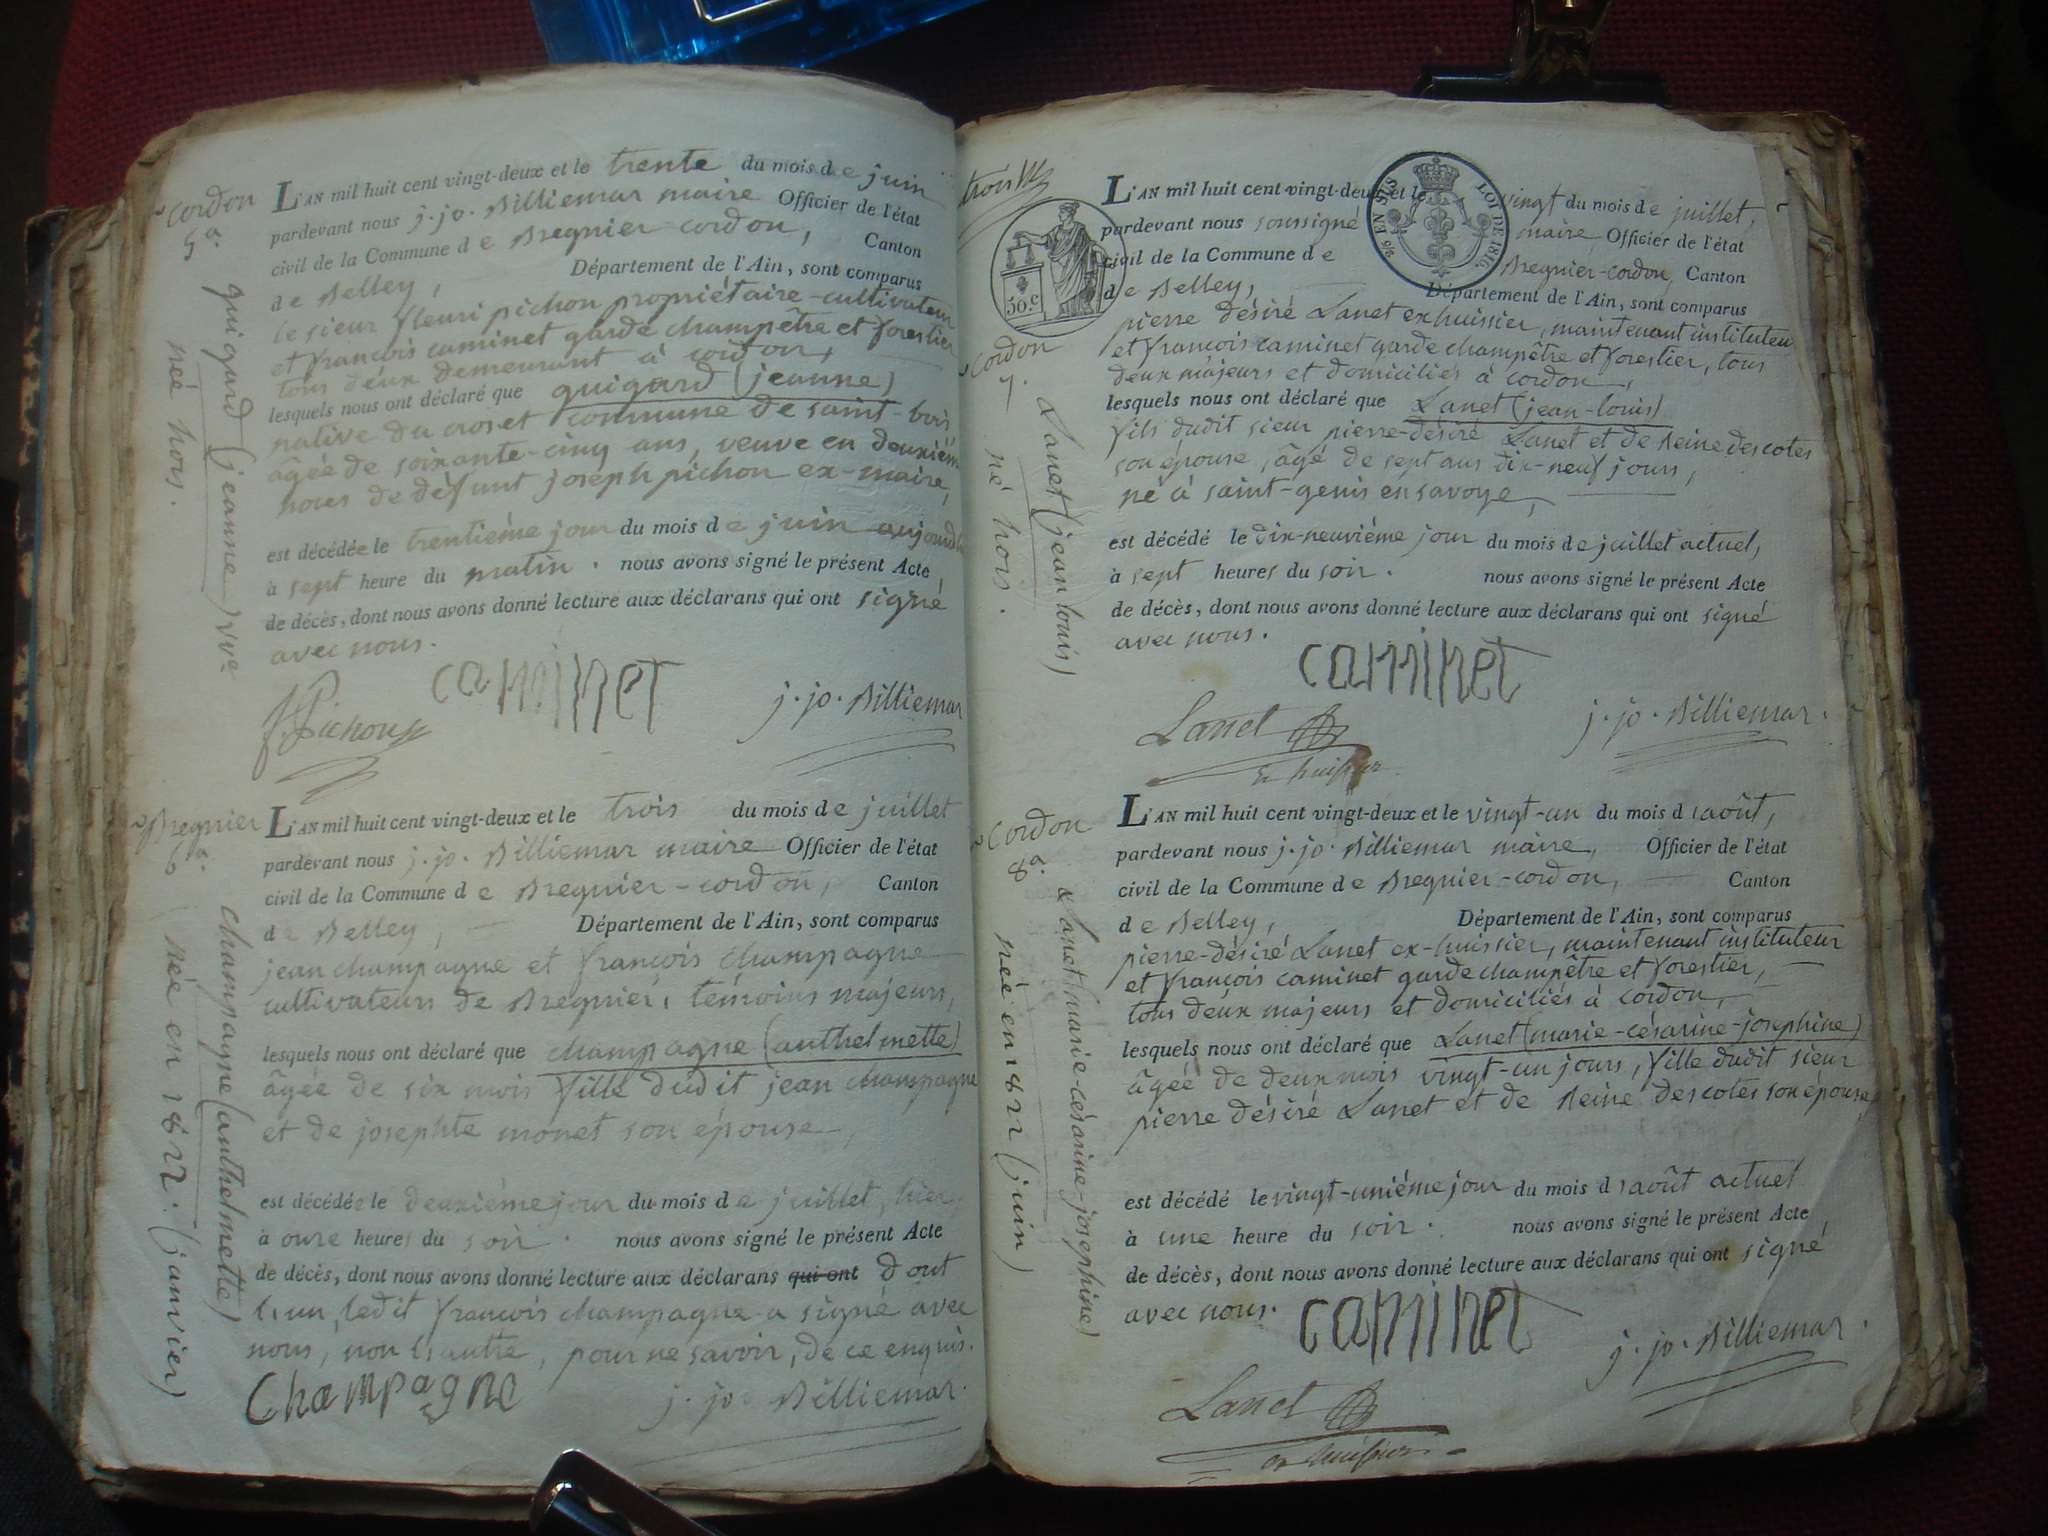 cordon
5e.
guigard (jeanne) vve
neé hors.
L'AN mil huit cent vingt-deux et le trente du mois de juin
pardevant nous j. jo. Billiemaz maire Officier de l'état
civil de la Commune de Bregnier-cordon, Canton
de Belley, Département de l'Ain, sont comparus
le sieur fleuri pichon propriétaire-cultivateur
et françois caminet garde champêtre et forestier
tous deux demeurant à cordon,
lesquels nous ont déclaré que guigard (jeanne)
native du croset commune de saint-bois
âgée de soixante-cinq ans, veuve en deuxièm
noces de défunt joseph pichon ex-maire,
est décédée le trentième jour du mois de juin aujourd'hui
à sept heure du matin. nous avons signé le présent Acte
de décès, dont nous avons donné lecture aux déclarans qui ont signé
avec nous.
f. Pichon caminet j. jo. Billiemaz
Bregnier
6e.
champagne (anthelmette)
née en 1822. (janvier)
L'AN mil huit cent vingt-deux et le trois du mois de juillet
pardevant nous j. jo. Billiemaz maire Officier de l'état
civil de la Commune de Bregnier-cordon, Canton
de Belley, Département de l'Ain, sont comparus
jean champagne et françois champagne
cultivateurs de Bregnier, témoins majeurs,
lesquels nous ont déclaré que champagne (anthelmette)
âgée de six mois fille dudit jean champagne
et de josephte monet son épouse,
est décédée le deuxième jour du mois de juillet, hier,
à onze heures du soir. nous avons signé le présent Acte
de décès, dont nous avons donné lecture aux déclarans qui ont dont
l'un, ledit françois champagne a signé avec
nous, non l'autre, pour ne savoir, de ce enquis.
Champagne j. jo. Billiemaz
50.c
EN SUS LOI DE 1816.
cordon
7.
Lanet (jean louis)
né hors.
L'AN mil huit cent vingt-deux et le vingt du mois de juillet,
pardevant nous soussigné maire, Officier de l'état
civil de la Commune de Bregnier-cordon, Canton
de Belley, Département de l'Ain, sont comparus
pierre désiré Lanet ex huissier, maintenant instituteu
et françois caminet garde champêtre et forestier, tous
deux majeurs et domiciliés à cordon,
lesquels nous ont déclaré que Lanet (jean-louis)
fils dudit sieur pierre-désiré Lanet et de Reine descotes
son épouse, âgé de sept ans dix-neuf jours,
né à saint-genis en savoye,
est décédé le dix-neuvième jour du mois de juillet actuel,
à sept heures du soir. nous avons signé le présent Acte
de décès, dont nous avons donné lecture aux déclarans qui ont signé
avec nous.
caminet
Lanet j. jo. Billiemaz.
Ex huissier
cordon
8e.
Lanet (marie-césarine-josephine)
née en 1822 (juin)
L'AN mil huit cent vingt-deux et le vingt-un du mois d'août,
pardevant nous j. jo. Billiemaz maire, Officier de l'état
civil de la Commune de Bregnier-cordon, Canton
de Belley, Département de l'Ain, sont comparus
pierre-désiré Lanet ex-huissier, maintenant instituteur
et françois caminet garde champêtre et forestier,
tous deux majeurs et domiciliés à cordon,
lesquels nous ont déclaré que Lanet (marie-césarine-josephine)
âgée de deux mois vingt-un jours, fille dudit sieur
pierre désiré Lanet et de Reine descotes son épouse,
est décédé le vingt-unième jour du mois d'août actuel
à une heure du soir. nous avons signé le présent Acte
de décès, dont nous avons donné lecture aux déclarans qui ont signé
avec nous.
caminet j. jo. Billiemaz.
Lanet
ex huissier